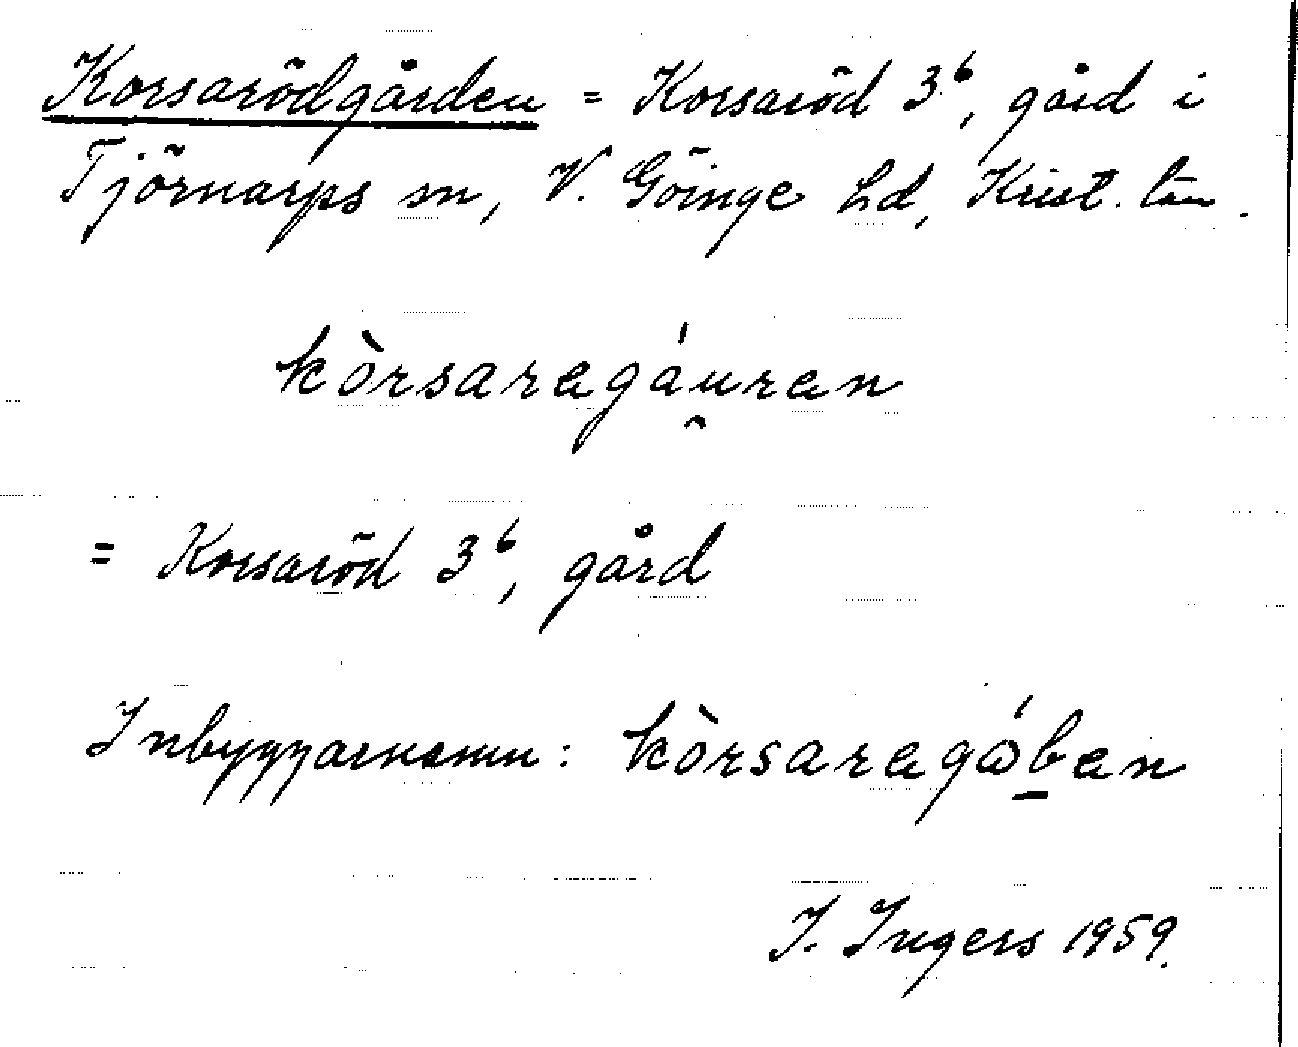 Korsarödgården = Korsaröd 3⁶, gård i
Tjörnarps sn, V. Göinge hd, Krist. län.
kòrsaragáu̯ran
= Korsaröd 3⁶, gård
Inbyggarnamn: kòrsaragώḇan
I. Ingers 1959.